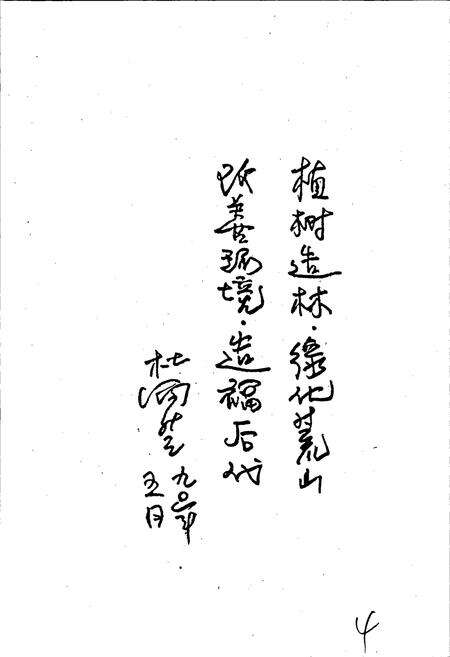 植树造林·绿化荒山
改善环境·造福后代
杜润生
九〇年
五月
4